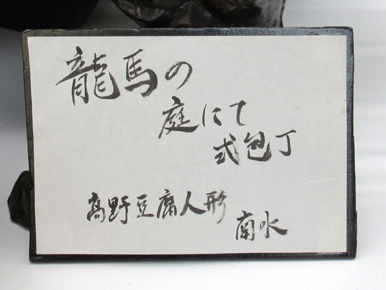 龍馬の
庭にて
式包丁
高野豆腐人形
南水